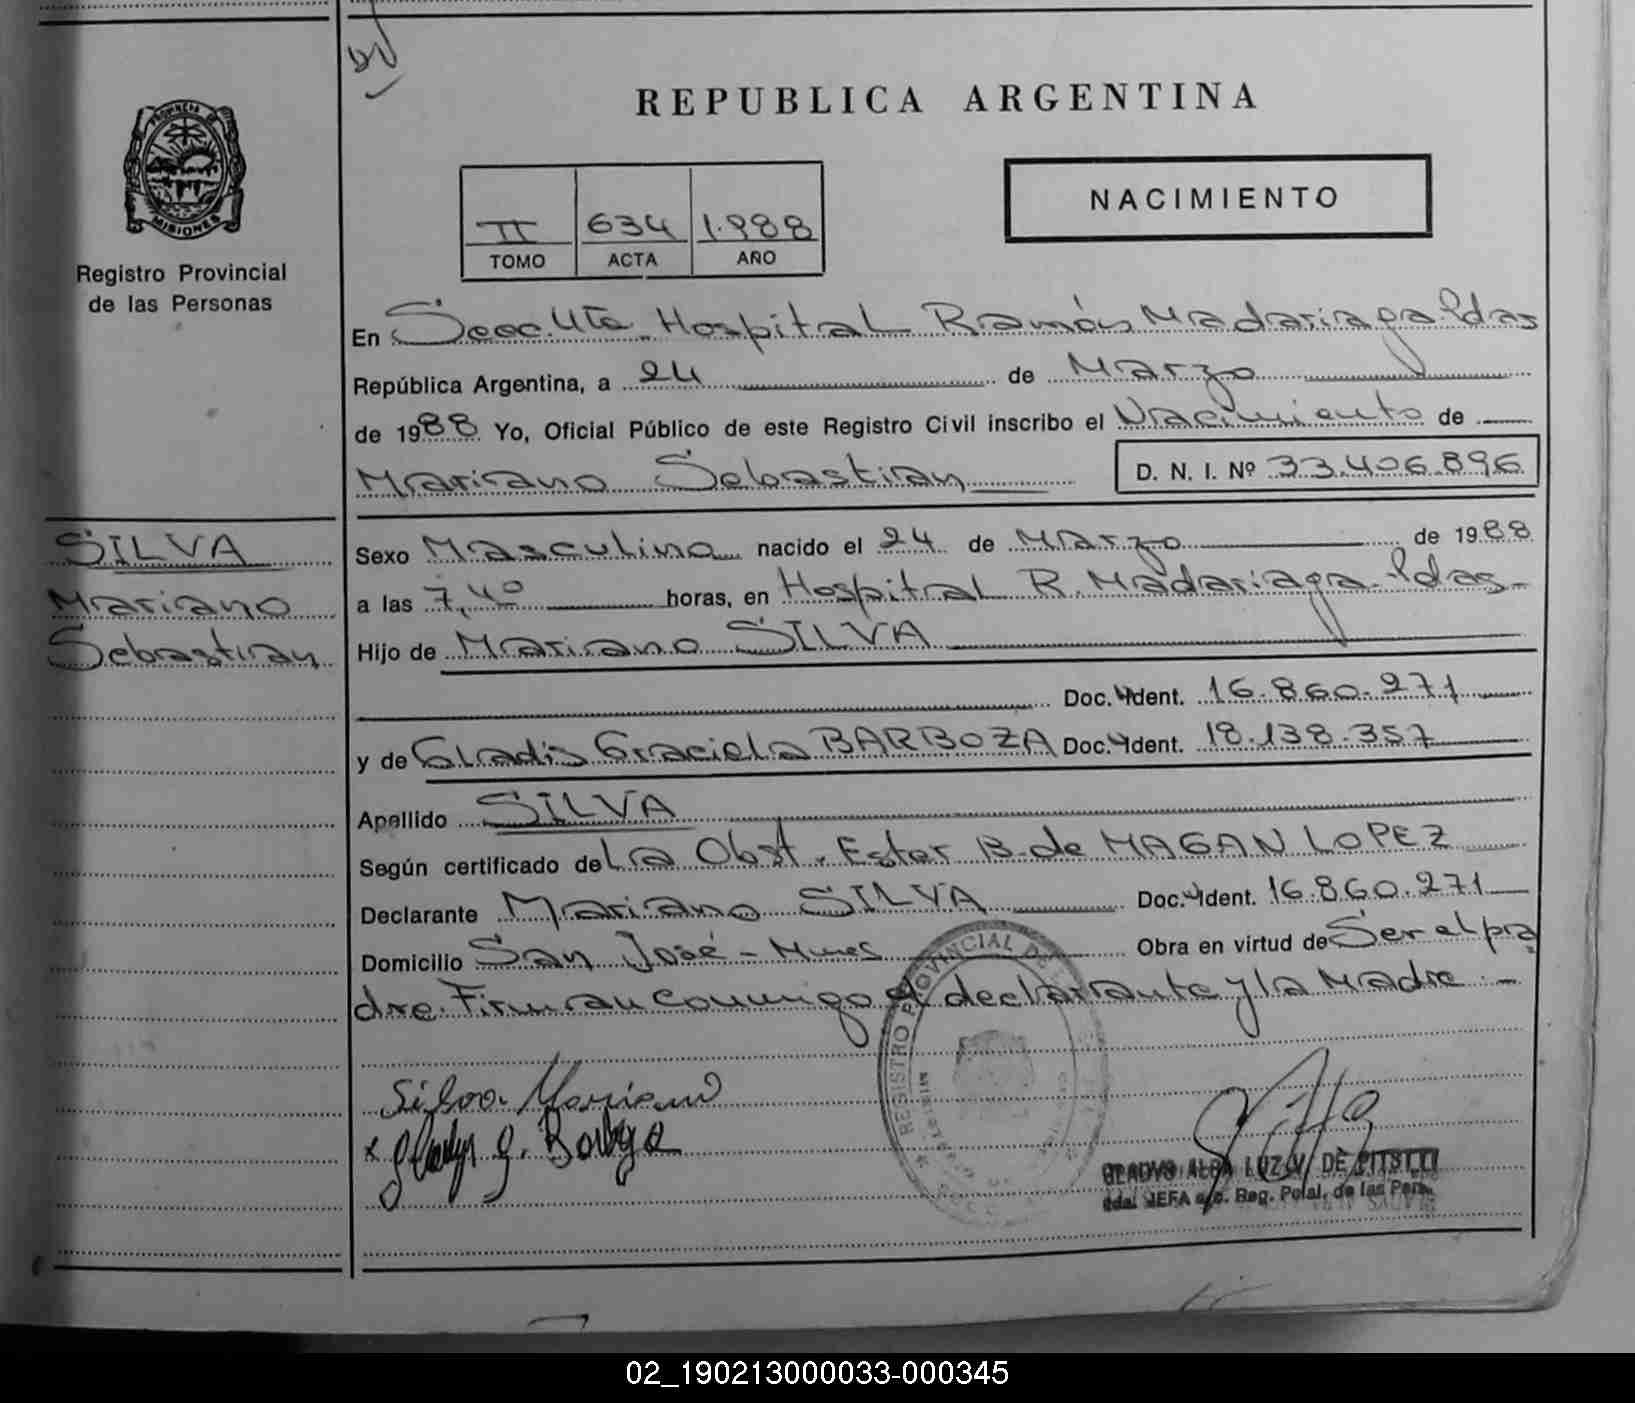 REPUBLICA ARGENTINA
PROVINCIA DE
MISIONES
Registro Provincial
de las Personas
II 634 1.988
TOMO ACTA AÑO
NACIMIENTO
En Secc. 4ta. Hospital Ramón Madariaga Pdas
República Argentina, a 24 de Marzo
de 1988 Yo, Oficial Público de este Registro Civil inscribo el Nacimiento de
Mariano Sebastian D. N. I. Nº 33.406.896
SILVA
Mariano
Sebastian
Sexo Masculino nacido el 24 de Marzo de 1988
a las 7,40 horas, en Hospital R. Madariaga. Pdas-
Hijo de Mariano SILVA
Doc. Ident. 16.860.271
y de Gladis Graciela BARBOZA Doc. Ident. 18.138.357
Apellido SILVA
Según certificado de La Obst. Ester B. de MAGAN LOPEZ
Declarante Mariano SILVA Doc. Ident. 16.860.271
Domicilio San José - Mnes Obra en virtud de Ser el pa
dre. Firman conmigo el declarante y la Madre.-
REGISTRO PROVINCIAL DE
Silva Mariano
x Gladys G. Barboza
GLADYS ALBA LUZ V. DE
JEFA Reg. Pcial. de las Pers.
02_190213000033-000345